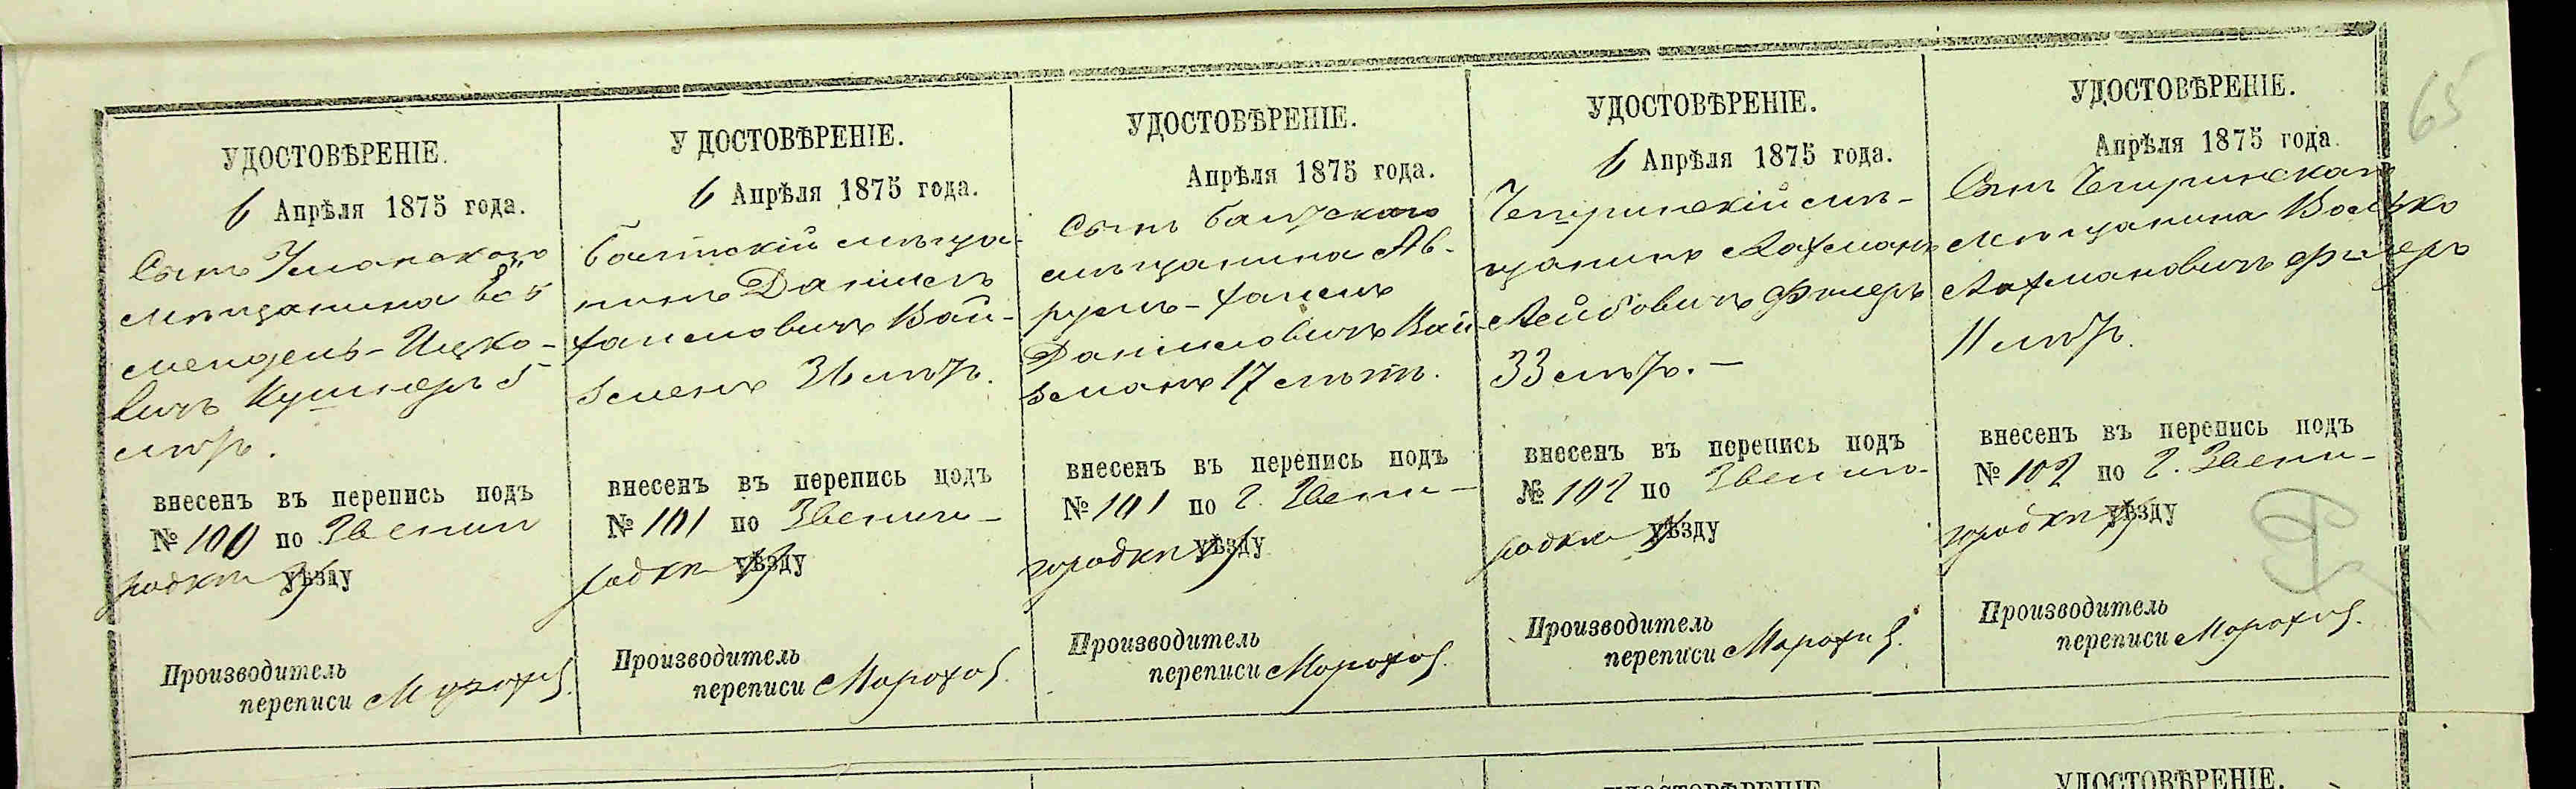 65
УДОСТОВѢРЕНІЕ.
6 Апрѣля 1875 года.
Сынъ Уманскаго
мѣщанина
мендель-Ицко-
вичъ Кушнеръ 5
лѣтъ.
внесенъ въ перепись подъ
№ 100 по Звениго
родкѣ уѣзду
Производитель
переписи
У ДОСТОВѢРЕНІЕ.
6 Апрѣля 1875 года.
Балтскій мѣща-
нинъ Даніилъ
Хаимовичъ Вай-
зменъ 36 лѣтъ.
внесенъ въ перепись подъ
№ 101 по Звениго-
родкѣ уѣзду
Производитель
переписи
УДОСТОВѢРЕНІЕ.
Апрѣля 1875 года.
Сынъ Балтскаго
мѣщанина Ав-
румъ-Хаимъ
Даниловичъ Вай
зманъ 17 лѣтъ.
внесенъ въ перепись подъ
№ 101 по г. Звени-
городкѣ уѣзду
Производитель
переписи
УДОСТОВѢРЕНІЕ.
6 Апрѣля 1875 года.
Чегиринскій мѣ-
щанинъ Нахманъ
Лейбовичъ Филеръ
33 лѣтъ. —
внесенъ въ перепись подъ
№ 102 по Звениго-
родкѣ уѣзду
Производитель
переписи
УДОСТОВѢРЕНІЕ.
Апрѣля 1875 года.
Сынъ Чегиринскаго
мѣщанина Волько
Нахмановичъ Филеръ
11 лѣтъ.
внесенъ въ перепись подъ
№ 102 по г. Звени-
городкѣ уѣзду
Производитель
переписи
УДОСТОВѢРЕНІЕ.